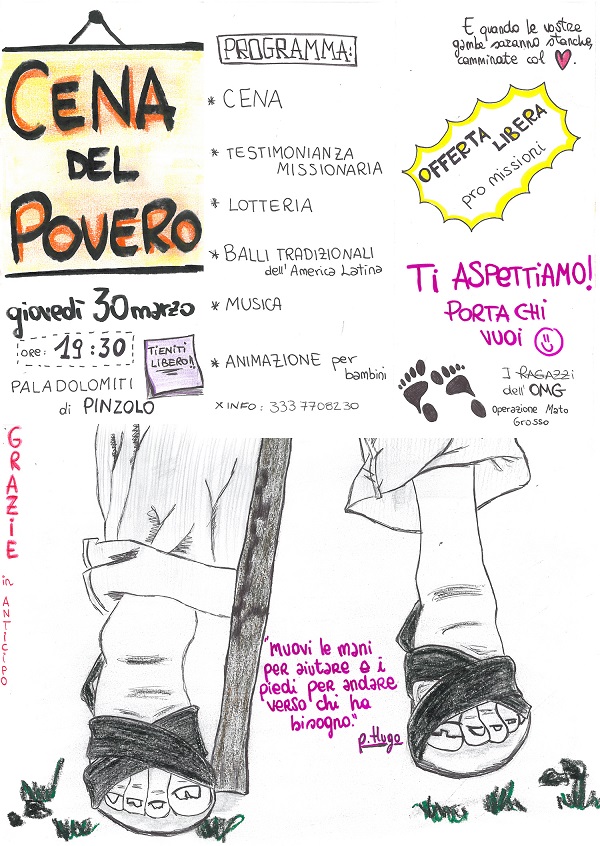 CENA
DEL
POVERO
giovedì 30 marzo
ORE: 19:30
TIENITI
LIBERO!!
PALADOLOMITI
di PINZOLO
PROGRAMMA:
* CENA
* TESTIMONIANZA
MISSIONARIA
* LOTTERIA
* BALLI TRADIZIONALI
dell'America Latina
* MUSICA
* ANIMAZIONE per
bambini
X INFO: 333 7708230
E quando le vostre
gambe saranno stanche,
camminate col ♥.
OFFERTA LIBERA
pro missioni
TI ASPETTIAMO!
PORTA CHI
VUOI ☺
I RAGAZZI
dell'OMG
Operazione Mato
Grosso
GRAZIE
in ANTICIPO
"Muovi le mani
per aiutare e i
piedi per andare
verso chi ha
bisogno."
p. Hugo